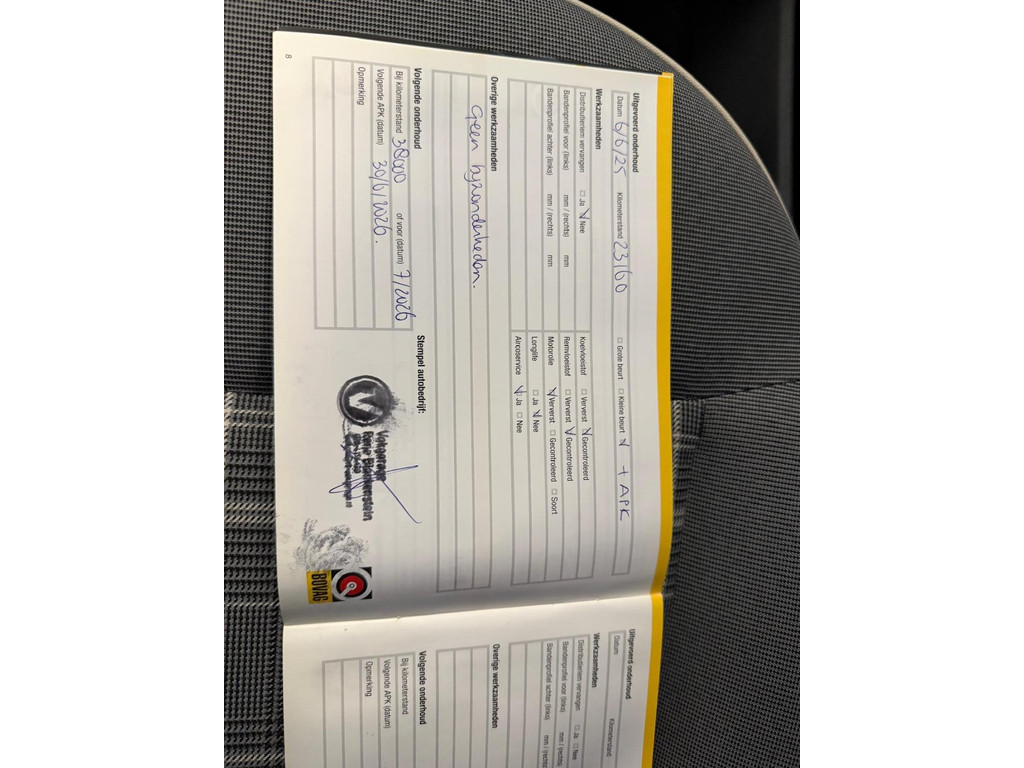 Uitgevoerd onderhoud
Datum 6/6/25 Kilometerstand 23160 ☐ Grote beurt ☐ Kleine beurt √ + APK
Werkzaamheden
Distributieriem vervangen ☐ Ja √ Nee Koelvloeistof ☐ Ververst √ Gecontroleerd
Bandenprofiel voor (links) mm / (rechts) mm Remvloeistof ☐ Ververst √ Gecontroleerd
Bandenprofiel achter (links) mm / (rechts) mm Motorolie √ Ververst ☐ Gecontroleerd ☐ Soort
Longlife ☐ Ja √ Nee
Aircoservice √ Ja ☐ Nee
Overige werkzaamheden
Geen byzonderheden.
Volgende onderhoud
Bij kilometerstand 38000 of voor (datum) 7/2026
Volgende APK (datum) 30/6/2026.
Opmerking
Stempel autobedrijf:
V
René Blankenstein
BOVAG
8
Uitgevoerd onderhoud
Datum Kilometerstand
Werkzaamheden
Distributieriem vervangen ☐ Ja ☐ Nee
Bandenprofiel voor (links) mm / (rechts)
Bandenprofiel achter (links) mm / (rechts)
Overige werkzaamheden
Volgende onderhoud
Bij kilometerstand
Volgende APK (datum)
Opmerking